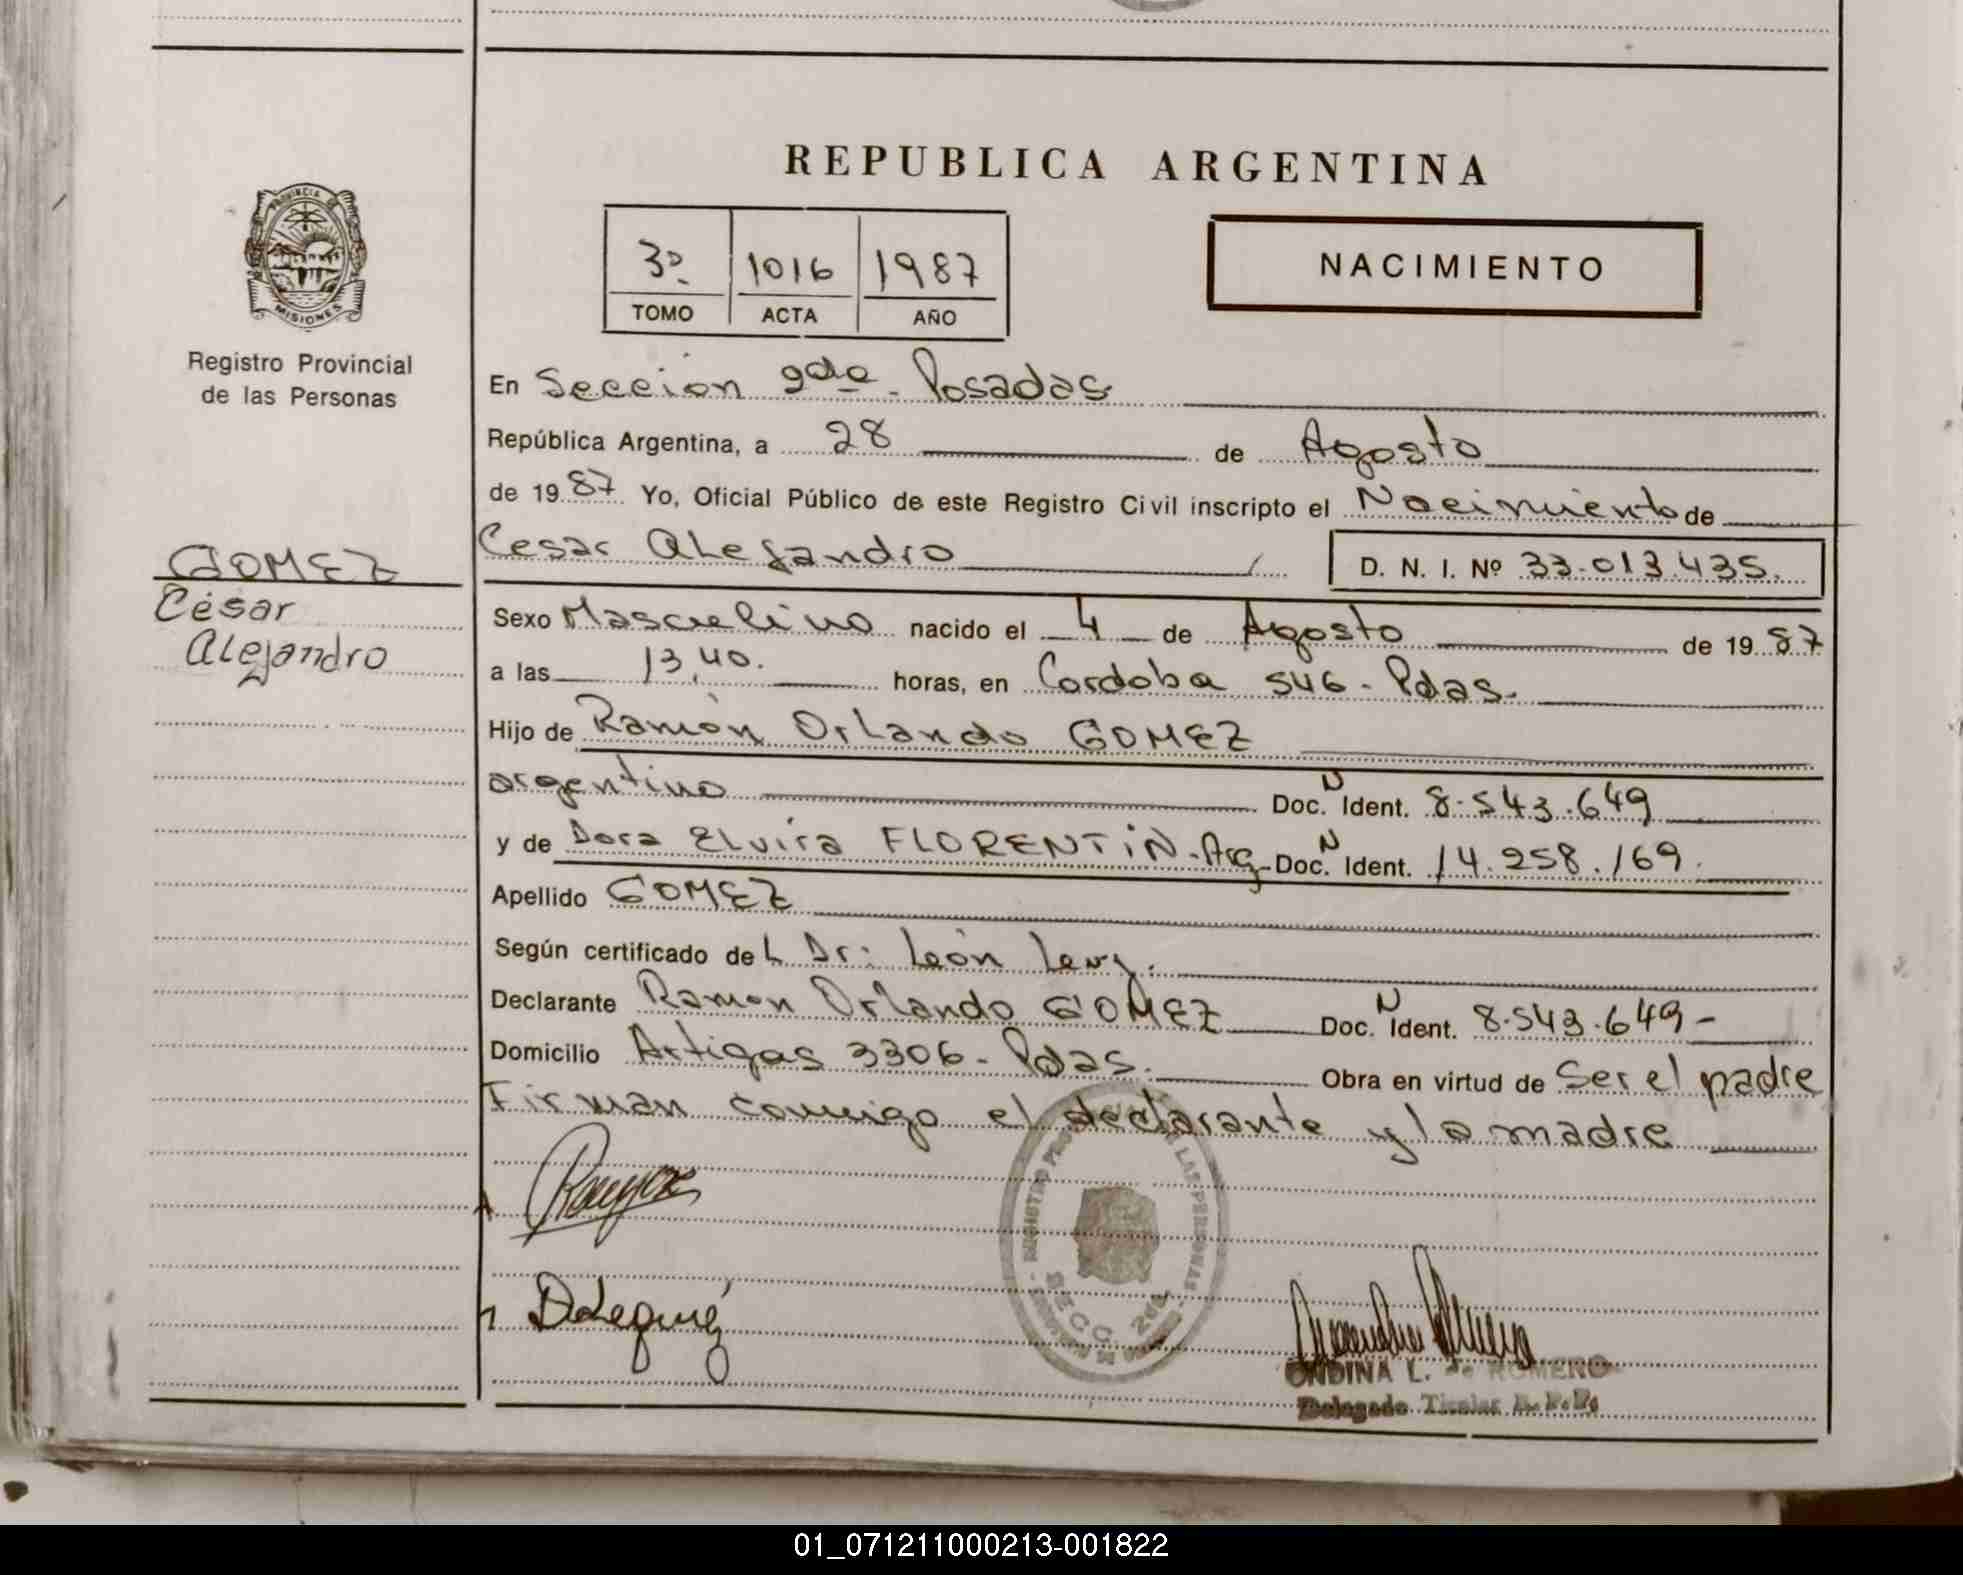 REPUBLICA ARGENTINA
PROVINCIA DE
MISIONES
Registro Provincial
de las Personas
3º 1016 1987
TOMO ACTA AÑO
NACIMIENTO
GOMEZ
César
Alejandro
En Seccion 2da - Posadas
República Argentina, a 28 de Agosto
de 1987 Yo, Oficial Público de este Registro Civil inscripto el Nacimiento de
Cesar Alejandro D. N. I. Nº 33.013.435.
Sexo Masculino nacido el 4 de Agosto de 1987
a las 13,40. horas, en Cordoba 546 - Pdas.
Hijo de Ramón Orlando GOMEZ
argentino Doc. N Ident. 8.543.649
y de Dora Elvira FLORENTIN - Arg Doc. N Ident. 14.258.169.
Apellido GOMEZ
Según certificado del Dr: León Levy.
Declarante Ramon Orlando GOMEZ Doc. N Ident. 8.543.649 -
Domicilio Artigas 3306 - Pdas. Obra en virtud de Ser el padre
Firman conmigo el declarante y la madre
SECC. 2da.
ONDINA L. de ROMERO
Delegado Titular R.P.P.
01_071211000213-001822